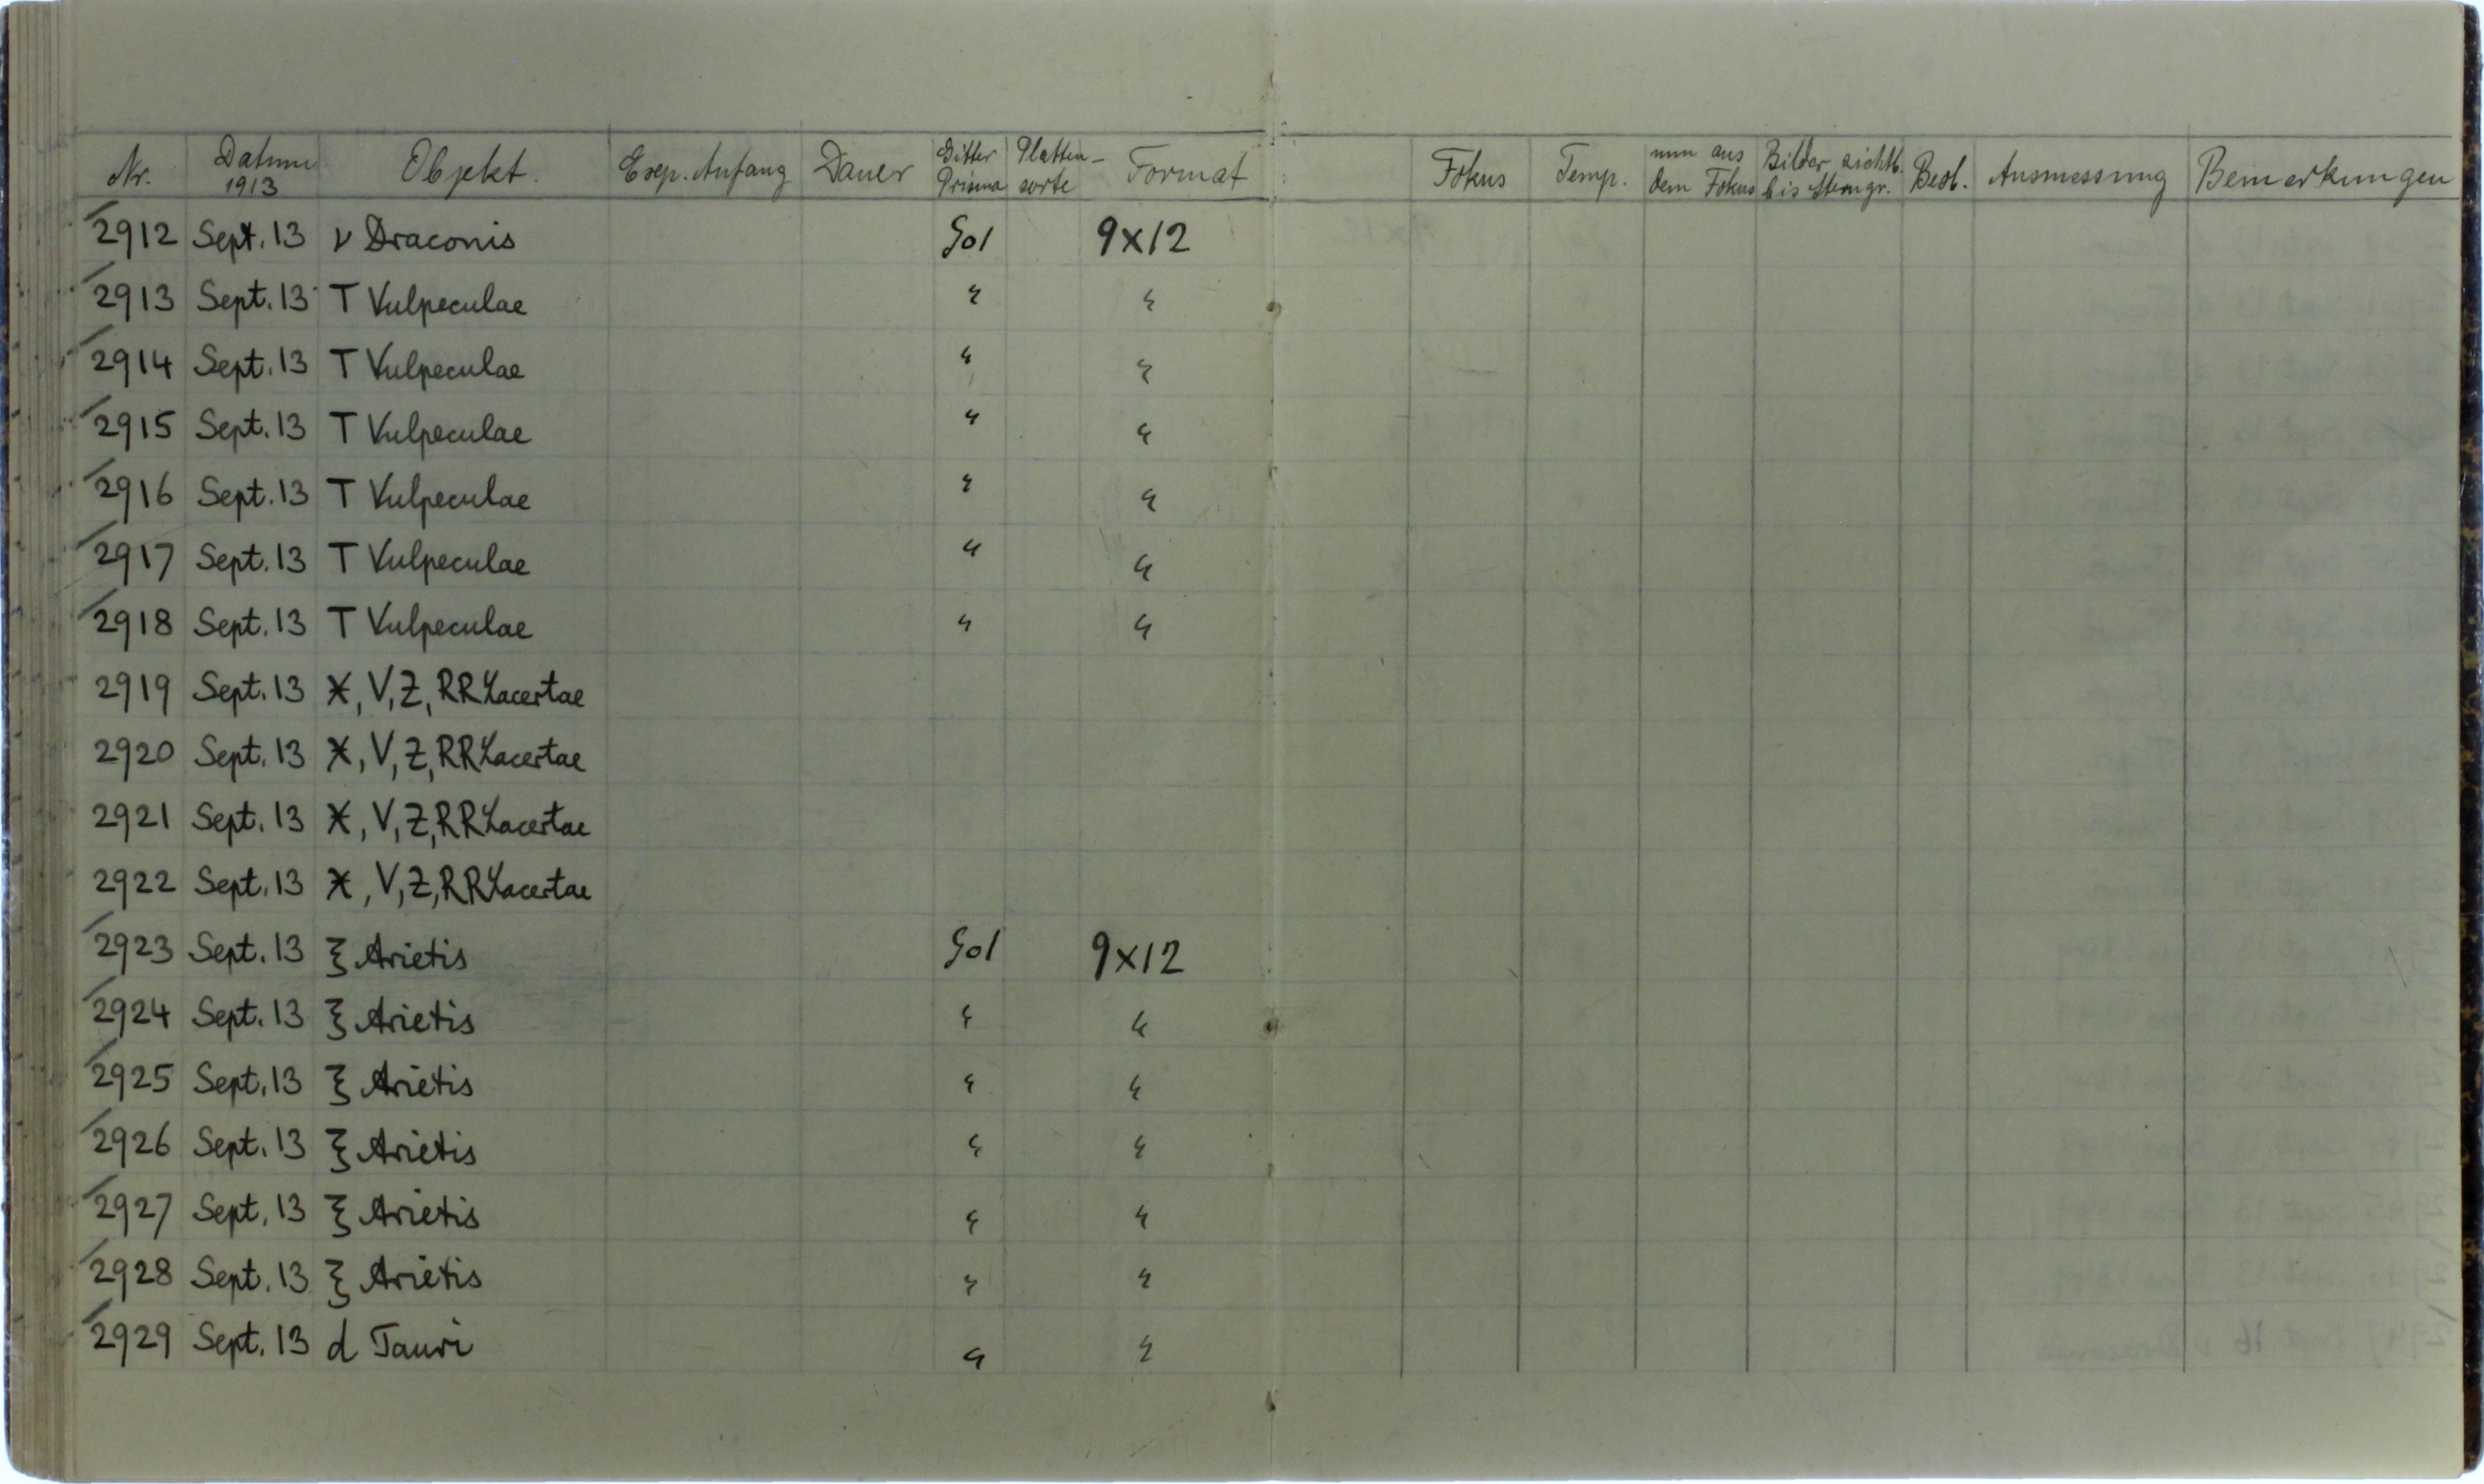 Nr. Datum 1913 Objekt. Exp. Anfang Dauer Gitter Prisma Platten-sorte Format Fokus Temp. mm aus dem Fokus Bilder sichtb. bis Sterngr. Beob. Ausmessung Bemerkungen
2912 Sept. 13 ν Draconis Gol 9x12
2913 Sept. 13 T Vulpeculae " "
2914 Sept. 13 T Vulpeculae " "
2915 Sept. 13 T Vulpeculae " "
2916 Sept. 13 T Vulpeculae " "
2917 Sept. 13 T Vulpeculae " "
2918 Sept. 13 T Vulpeculae " "
2919 Sept. 13 X, V, Z, RR Lacertae
2920 Sept. 13 X, V, Z, RR Lacertae
2921 Sept. 13 X, V, Z, RR Lacertae
2922 Sept. 13 X, V, Z, RR Lacertae
2923 Sept. 13 ξ Arietis Gol 9x12
2924 Sept. 13 ξ Arietis " "
2925 Sept. 13 ξ Arietis " "
2926 Sept. 13 ξ Arietis " "
2927 Sept. 13 ξ Arietis " "
2928 Sept. 13 ξ Arietis " "
2929 Sept. 13 d Tauri " "